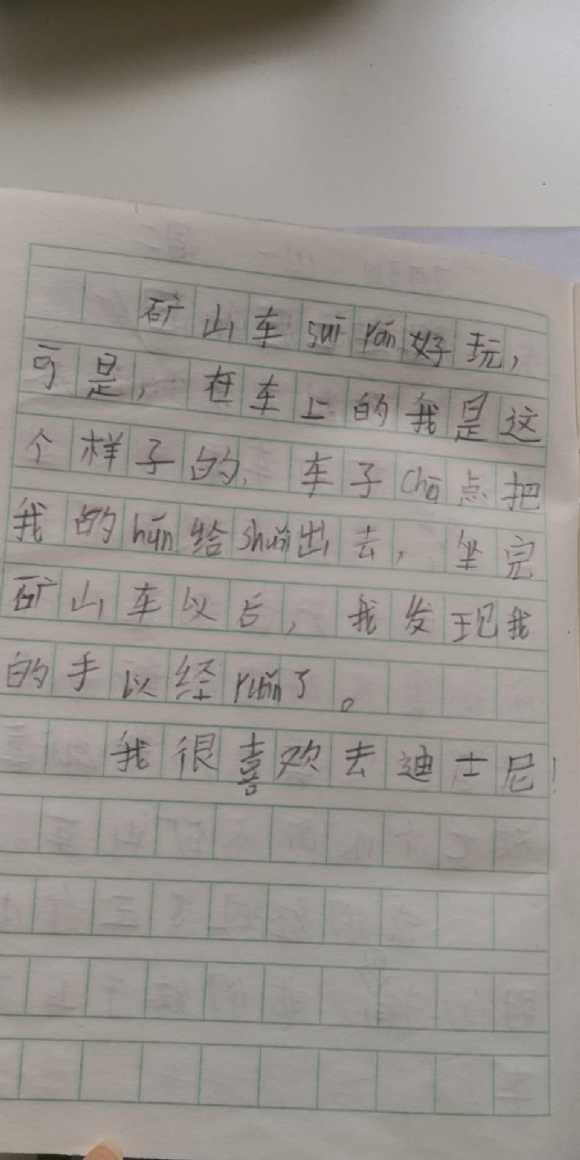 矿山车suī rán好玩，
可是，在车上的我是这
个样子的，车子chā点把
我的hún给shuǎi出去，坐完
矿山车以后，我发现我
的手以经ruǎn了。
我很喜欢去迪士尼！